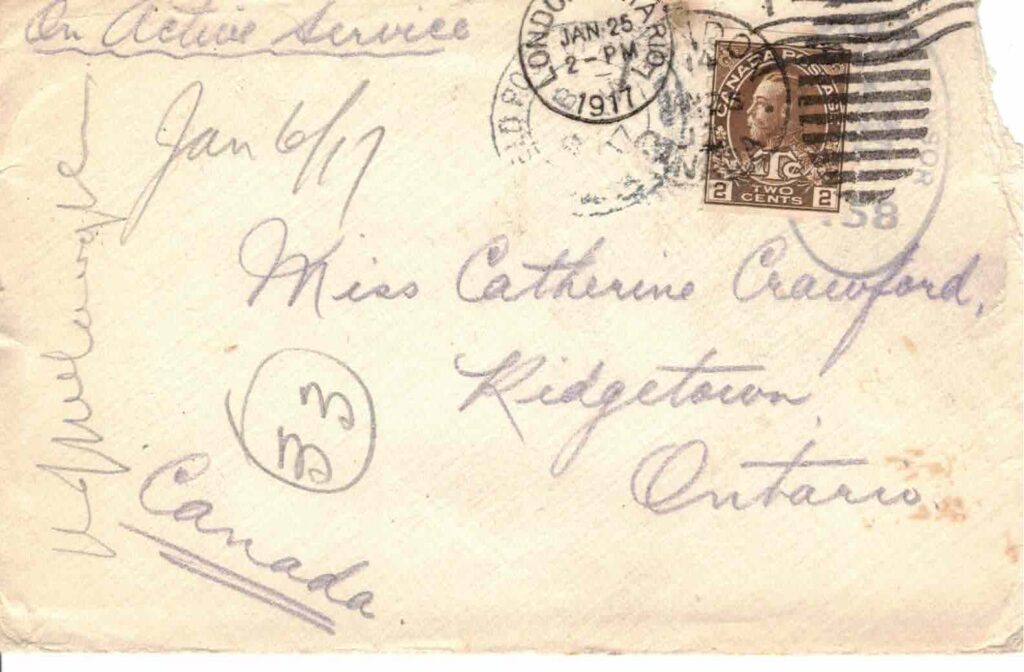 On Active Service
LONDON, ONTARIO
JAN 25
2 - PM
1917
CANADA POSTAGE
1TC
2 TWO CENTS 2
Jan 6/17
Miss Catherine Crawford,
Ridgetown,
Ontario.
Canada